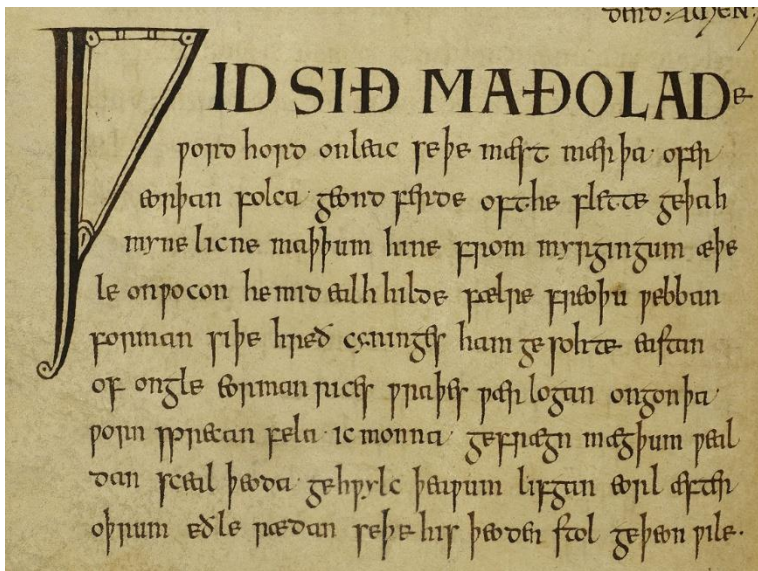 AMEN:
ǷIDSIÐ MAÐOLADe
ƿord hord onleac seþe mæst mærþa ofer
eorþan folca geond ferde oft he flette geþah
myne licne maþþum hine from myrgingum æþe
le onƿocon he mid ealh hilde fælre freoþu ƿebban
forman siþe hreð cyninges ham gesohte eastan
of ongle eorman rices ƿraþes ƿær logan ongon þa
ƿorn sprecan fela· ic monna gefrægn mægþum ƿeal
dan sceal þeoda gehƿylc þeaƿum lifgan eorl æfter
oþrum eðle rædan seþe his þeoden stol geþeon ƿile·